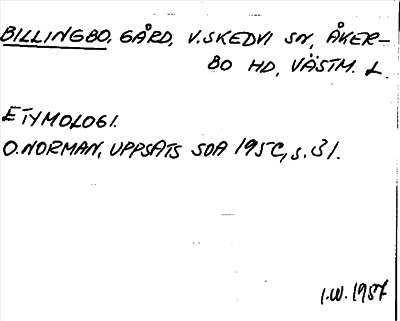 BILLINGBO, GÅRD, V. SKEDVI SN, ÅKER-
BO HD, VÄSTM. L.
ETYMOLOGI.
O. NORMAN, UPPSATS SOA 1950, s. 31.
I.W. 1987